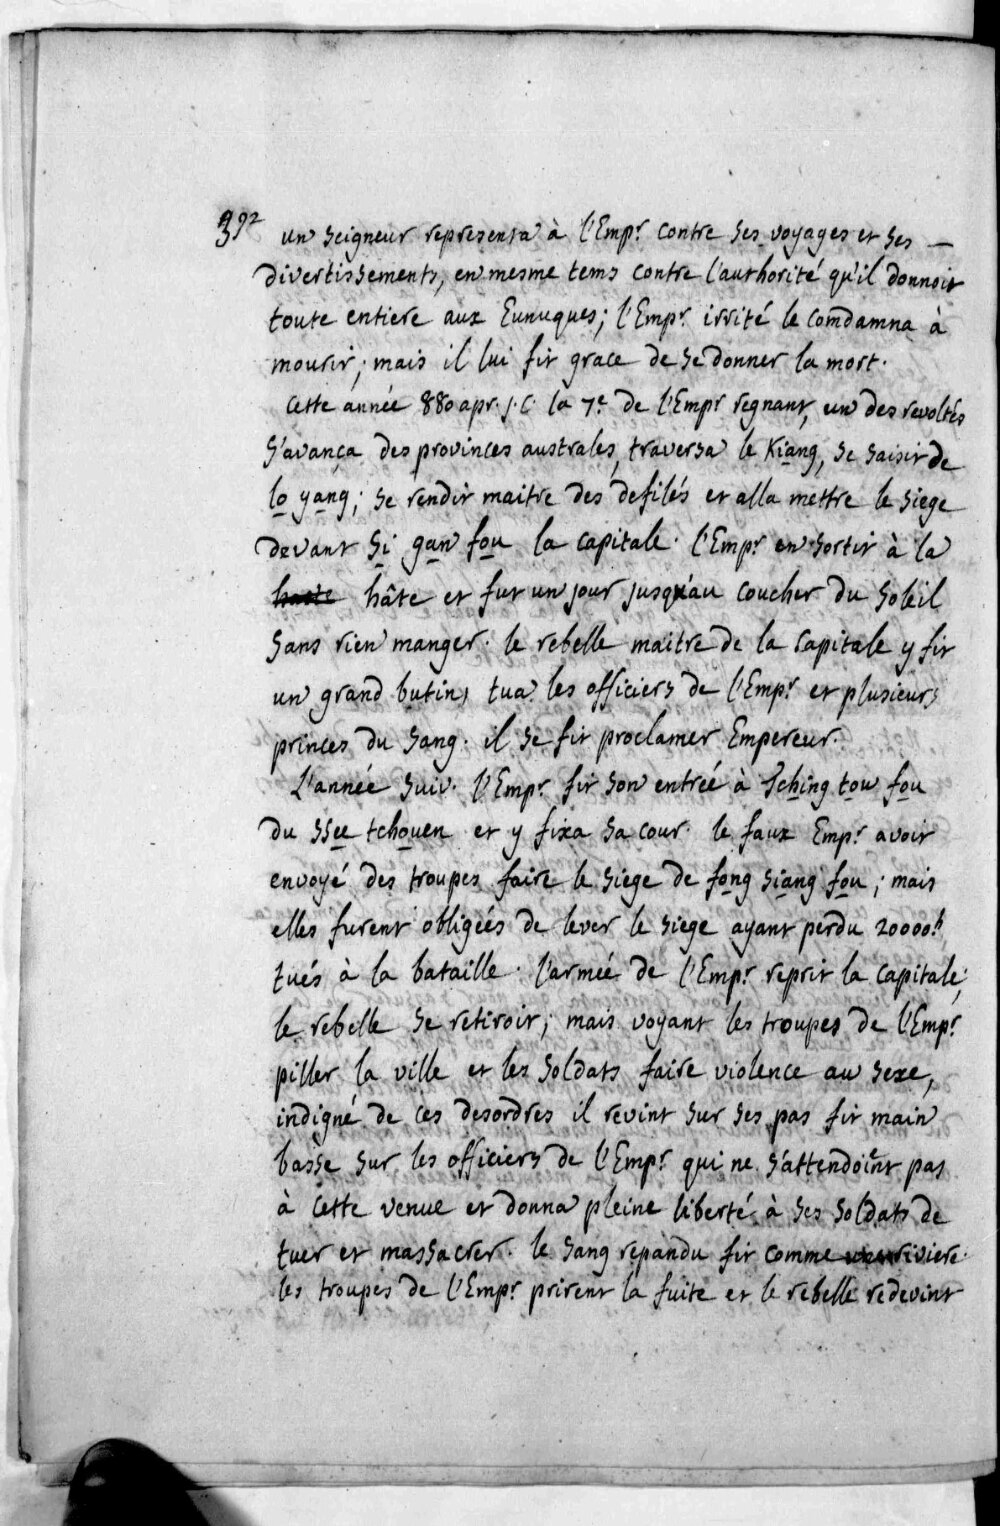 392
un seigneur representa à l'Emp.r contre ses voyages et ses —
divertissements, en mesme tems contre l'authorité qu'il donnoit
toute entiere aux Eunuques; l'Emp.r irrité le comdamna à
mourir; mais il lui fit grace de se donner la mort.
Cette année 880 apr. J.C. la 7.e de l'Emp.r regnant, un des revoltés
s'avança des provinces australes, traversa le Kiang, se saisit de
lo yang; se rendit maitre des defilés et alla mettre le siege
devant Si gan fou la capitale. l'Emp.r en sortit à la
haste hâte et fut un jour jusqu'au coucher du Soleil
sans rien manger. le rebelle maitre de la capitale y fit
un grand butin, tua les officiers de l'Emp.r et plusieurs
princes du sang. il se fit proclamer Empereur.
L'année suiv. l'Emp.r fit son entrée à Tching tou fou
du ssee tchouen et y fixa sa cour. le faux Emp.r avoit
envoyé des troupes faire le siege de fong siang fou; mais
elles furent obligées de lever le siege ayant perdu 20000.h
tués à la bataille. l'armée de l'Emp.r reprit la capitale;
le rebelle se retiroit; mais voyant les troupes de l'Emp.r
piller la ville et les soldats faire violence au sexe,
indigné de ces desordres il revint sur ses pas fit main
basse sur les officiers de l'Emp.r qui ne s'attendoient pas
à cette venue et donna pleine liberté à ses soldats de
tuer et massacrer. le sang repandu fit comme une riviere.
les troupes de l'Emp.r prirent la fuite et le rebelle redevint